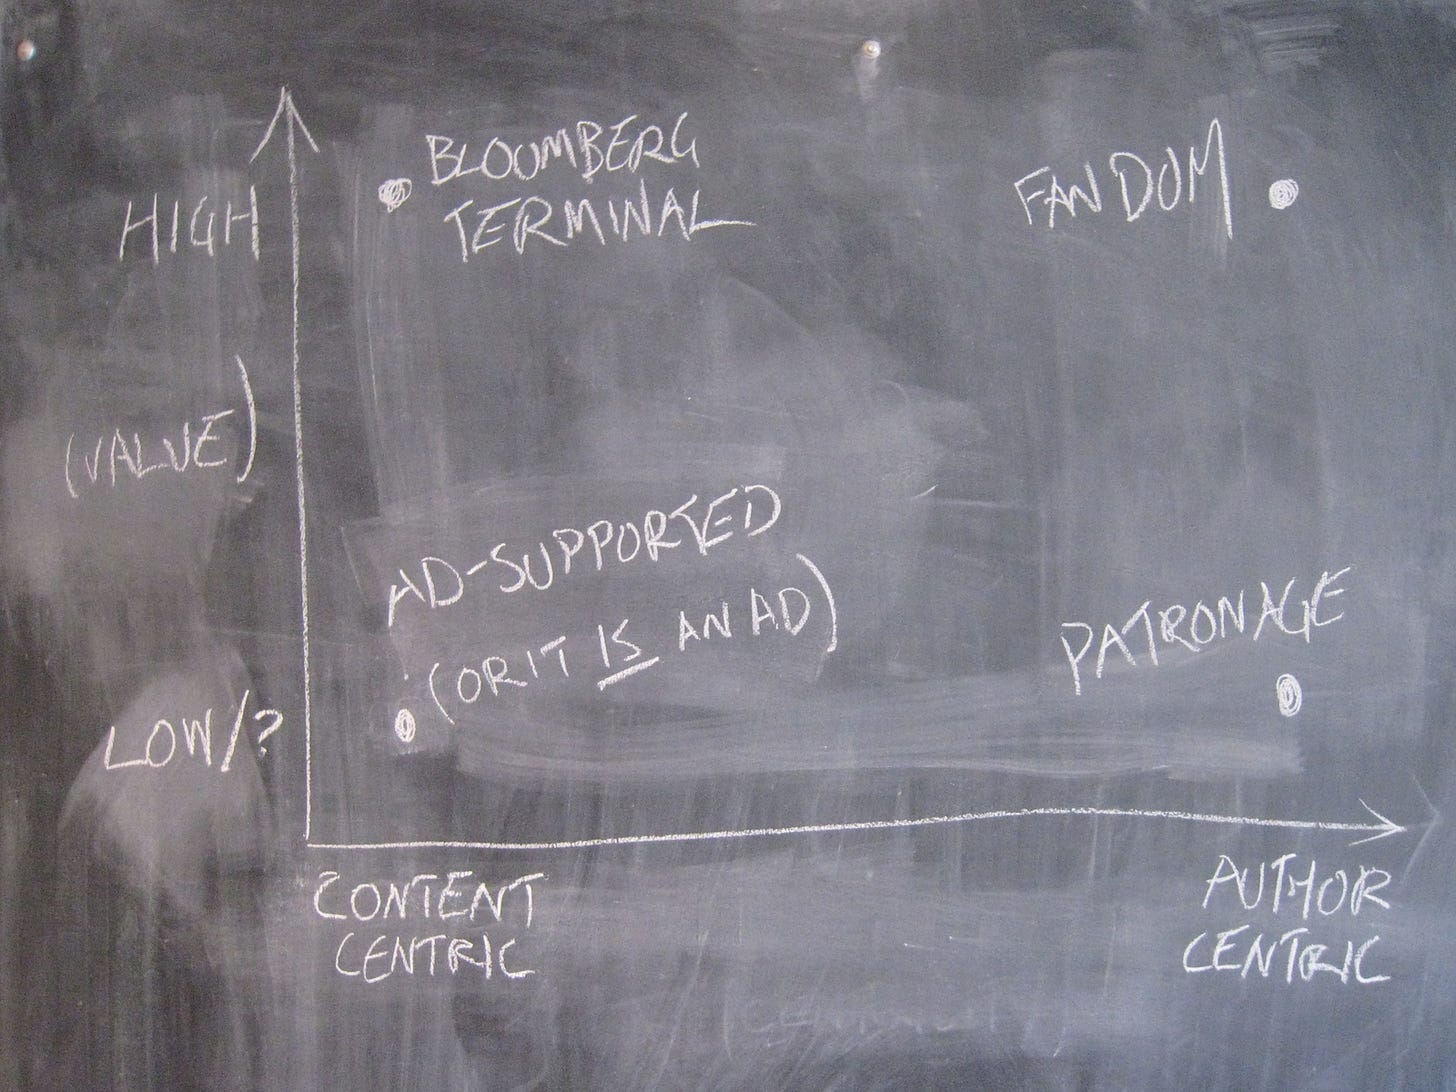 BLOOMBERG
TERMINAL
FANDOM
HIGH
(VALUE)
AD-SUPPORTED
(OR IT IS AN AD)
PATRONAGE
LOW/?
CONTENT
CENTRIC
AUTHOR
CENTRIC